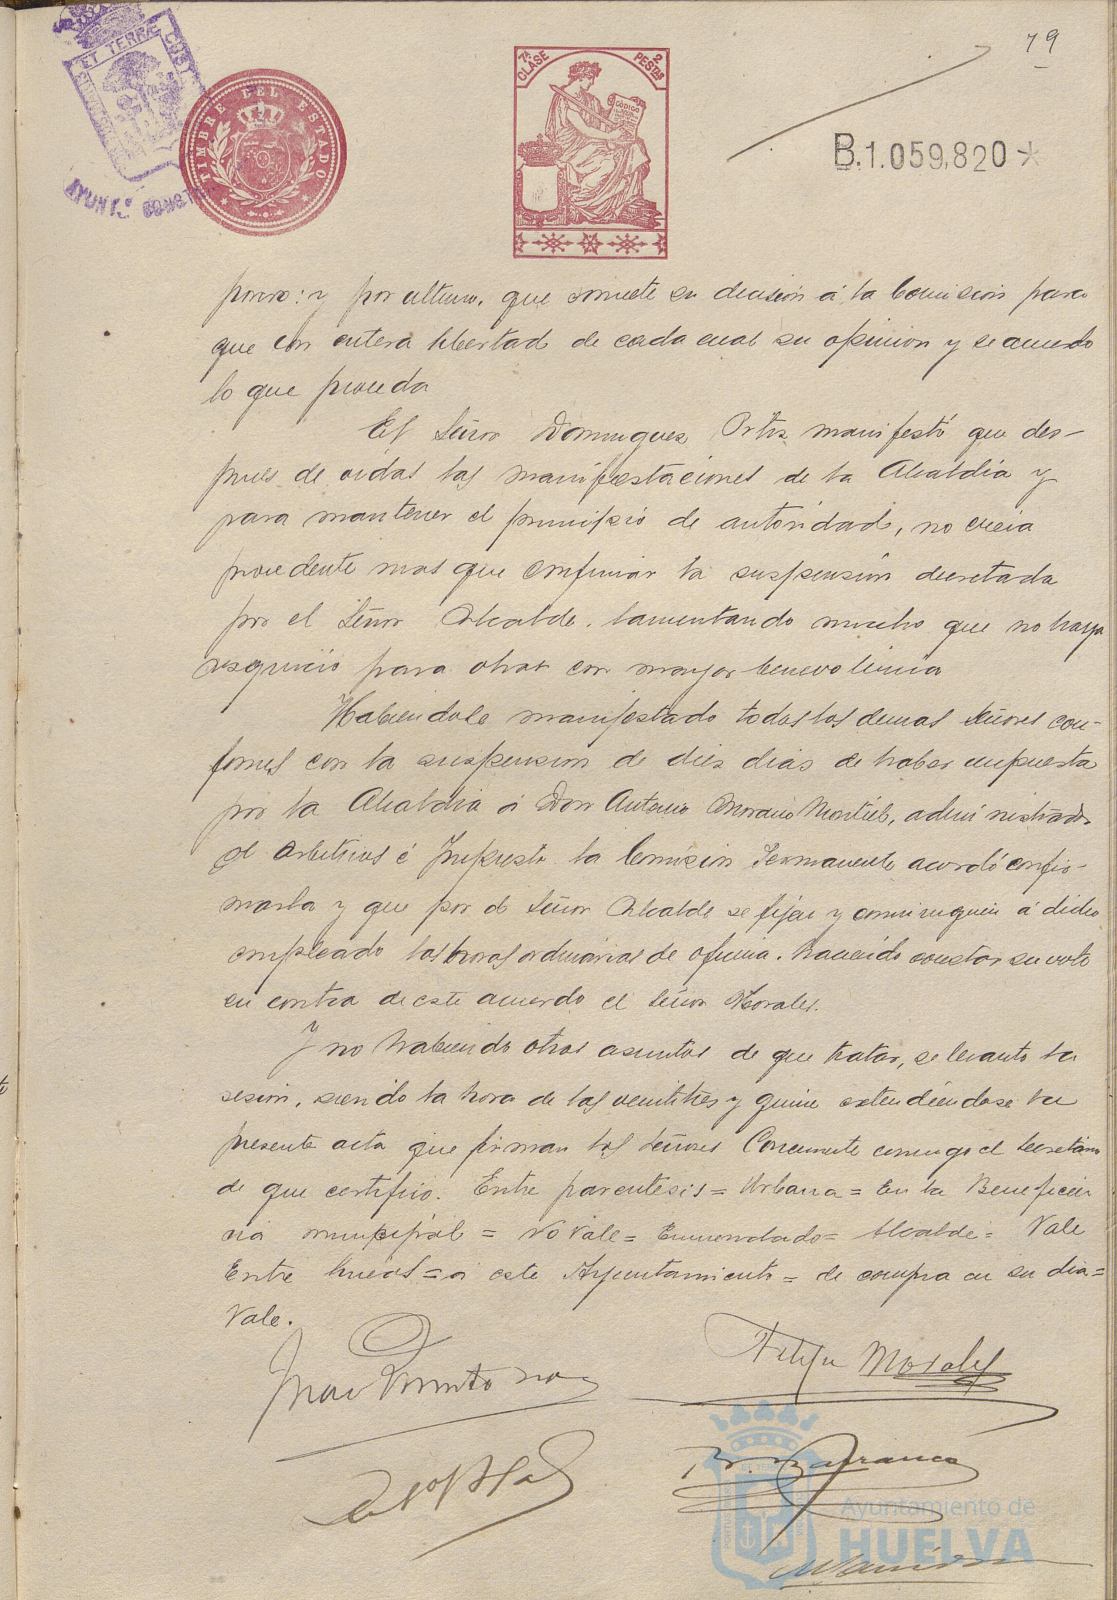 79
ET TERRÆ CUST
AYUNTº CONSTI
TIMBRE DEL ESTADO
7ª CLASE
2 PESTAS
CODIGO
B.1.059.820*
y por ultimo, que somete su decision á la Comision para
que con entera libertad de cada cual su opinion y se acuerde
lo que proceda
El Señor Dominguez Ortiz manifestó que des-
pues de oidas las manifestaciones de la Alcaldia y
para mantener el principio de autoridad, no creia
procedente mas que confirmar la suspensión decretada
por el Señor Alcalde, lamentando mucho que no haya
resquicio para obrar con mayor benevolencia
Habiendole manifestado todos los demas Señores con-
formes con la suspension de diez dias de haber impuesta
por la Alcaldia á Don Antonio Morano Montiel, administrador
de Arbitrios é Impuesto la Comisión Permanente acordó confir-
marla y que por el Señor Alcalde se fijen y comuniquen á dicho
empleado las horas ordinarias de oficina, haciendo constar su voto
en contra de este acuerdo el Señor Morales.
Y no habiendo otros asuntos de que tratar, se levanto la
sesion, siendo la hora de las veintitres y quince extendiendose la
presente acta que firman los Señores Concurrente conmigo el Secretario
de que certifico. Entre parentesis = Urbana = En la Beneficen
cia municipal = No Vale = Enmendado = Alcalde = Vale
Entre lineas = á este Ayuntamiento = de compra en su dia =
Vale.
Felipe Morales
Barranco
Ayuntamiento de
HUELVA